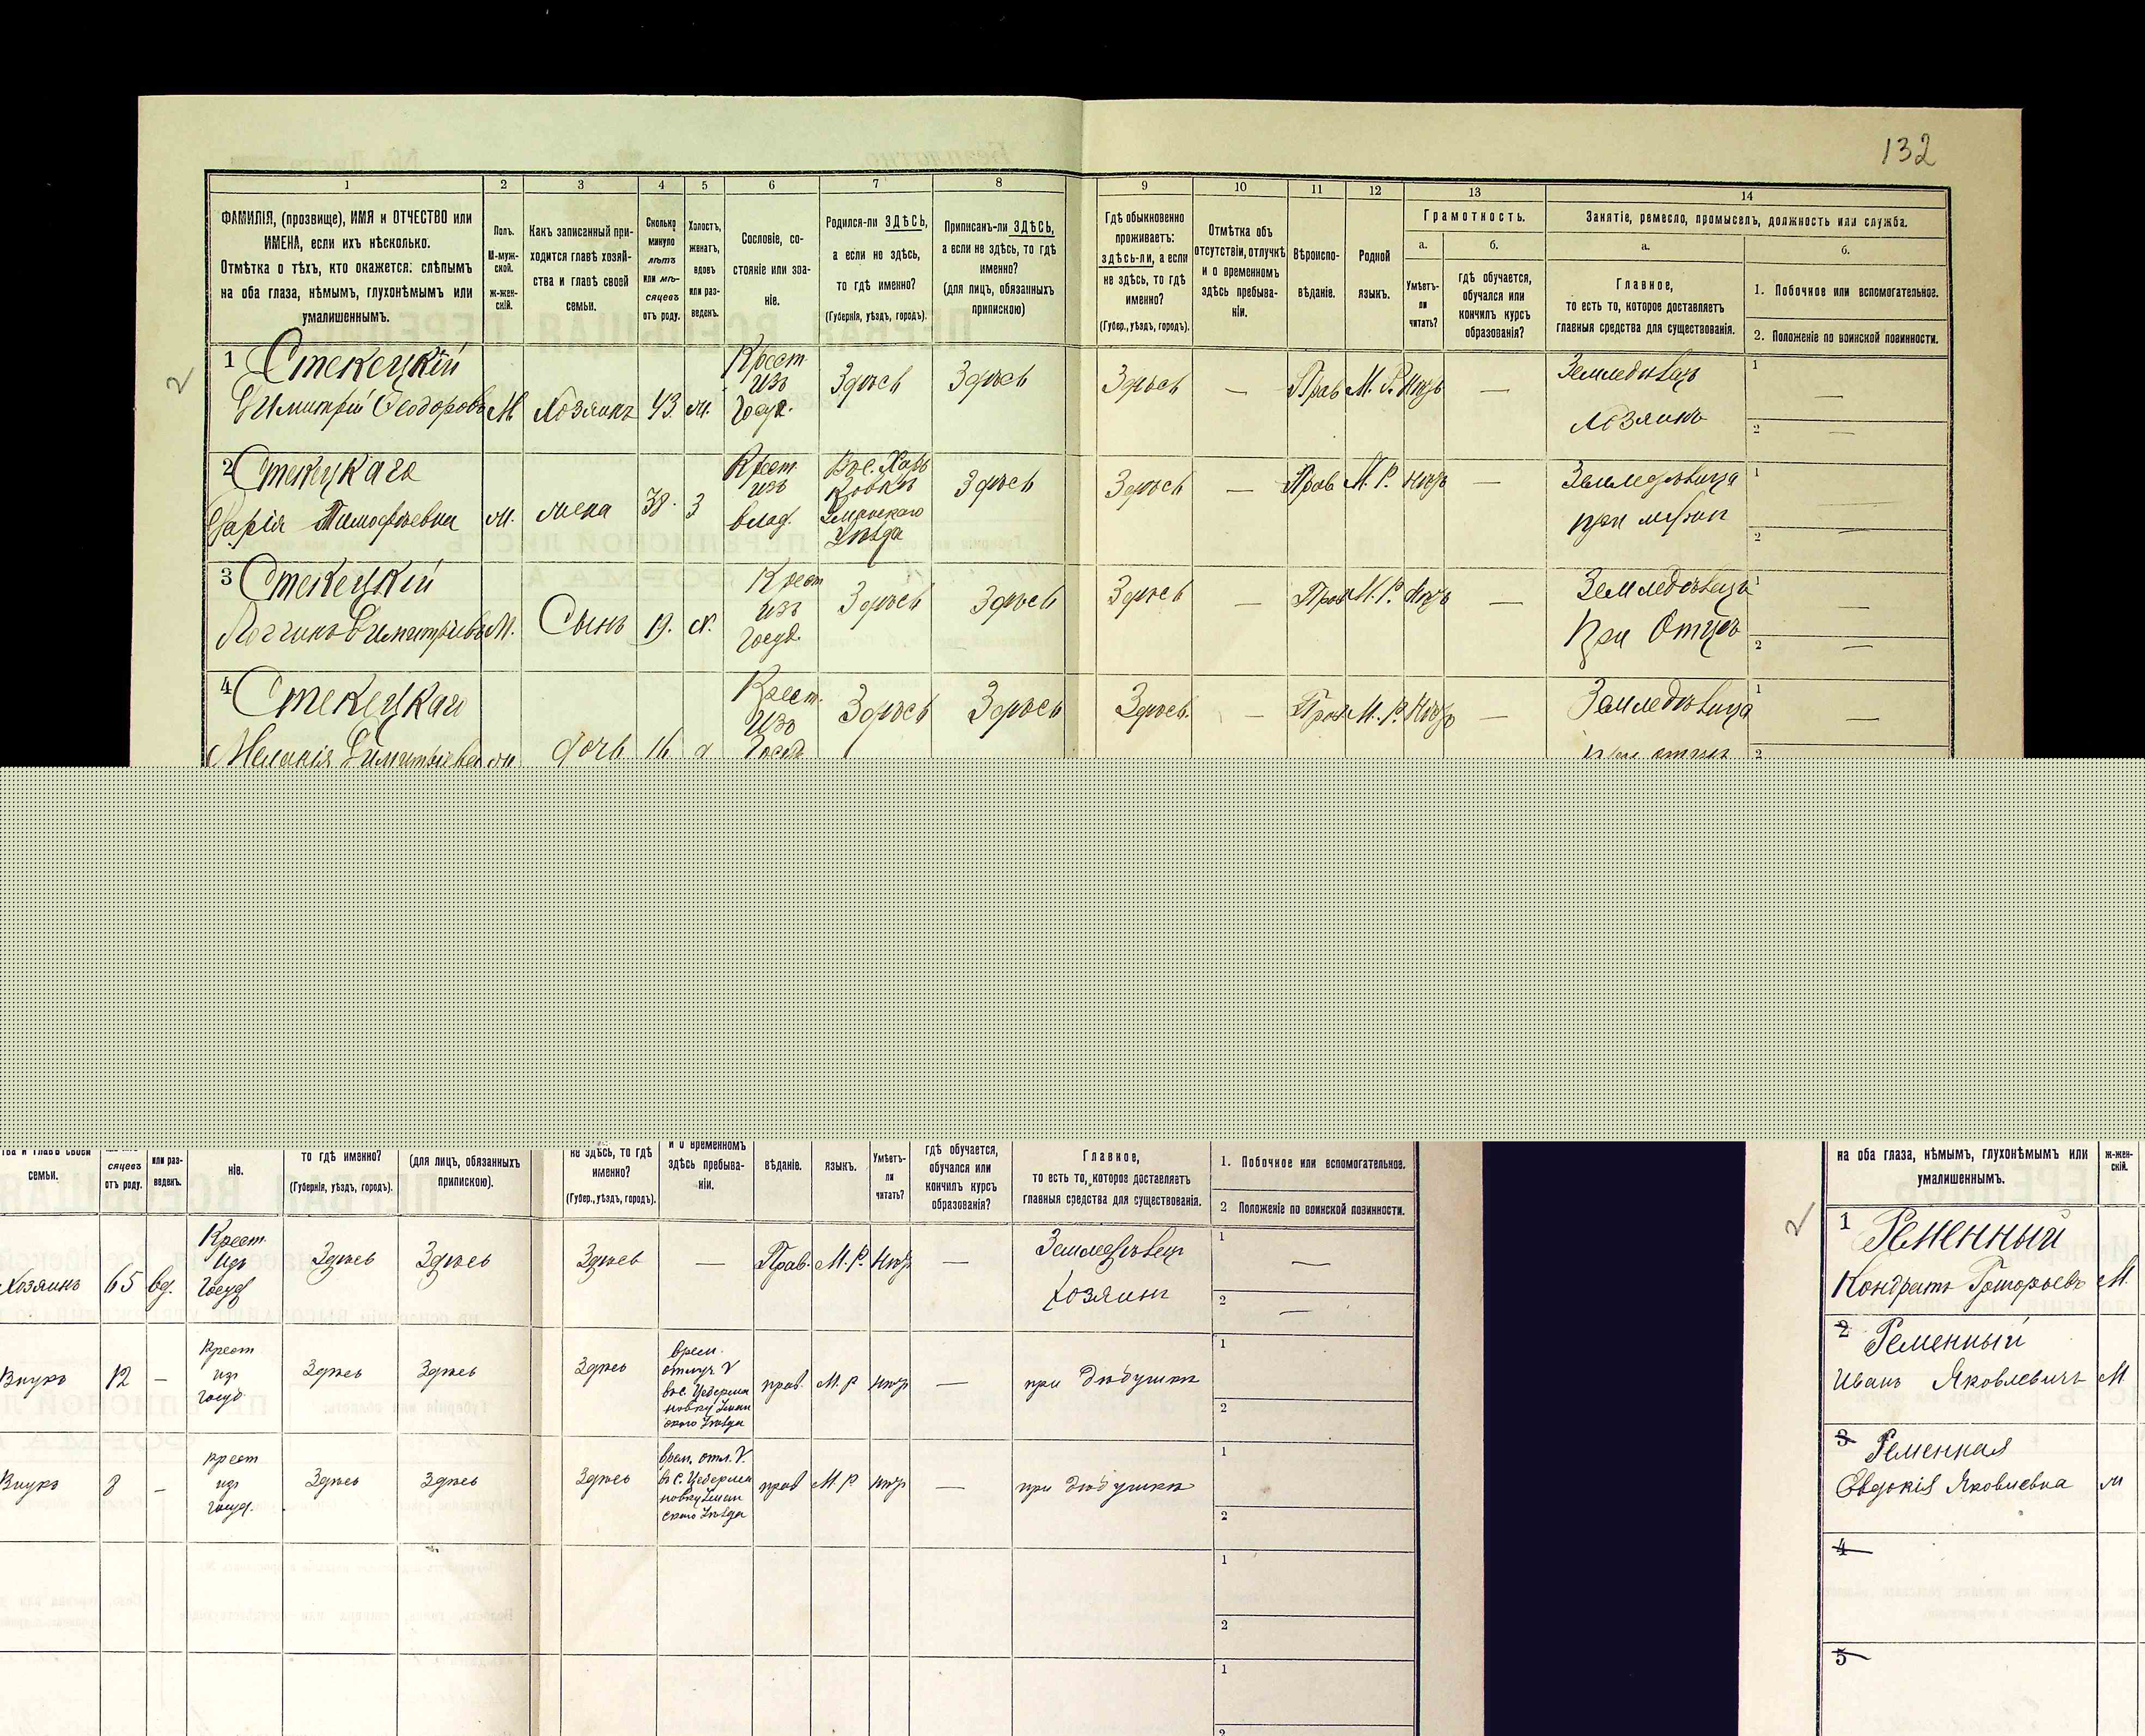 132
1 2 3 4 5 6 7 8 9 10 11 12 13 14
ФАМИЛІЯ, (прозвище), ИМЯ и ОТЧЕСТВО или
ИМЕНА, если ихъ нѣсколько.
Отмѣтка о тѣхъ, кто окажется: слѣпымъ
на оба глаза, нѣмымъ, глухонѣмымъ или
умалишеннымъ.
Полъ.
М-муж-
ской.
ж-жен-
скій.
Какъ записанный при-
ходится главѣ хозяй-
ства и главѣ своей
семьи.
Сколько
минуло
лѣтъ
или мѣ-
сяцевъ
отъ роду.
Холостъ,
женатъ,
вдовъ
или раз-
веденъ.
Сословіе, со-
стояніе или зва-
ніе.
Родился-ли ЗДѢСЬ,
а если не здѣсь,
то гдѣ именно?
(Губернія, уѣздъ, городъ).
Приписанъ-ли ЗДѢСЬ,
а если не здѣсь, то гдѣ
именно?
(для лицъ, обязанныхъ
припискою)
Гдѣ обыкновенно
проживаетъ:
здѣсь-ли, а если
не здѣсь, то гдѣ
именно?
(Губер., уѣздъ, городъ).
Отмѣтка объ
отсутствіи, отлучкѣ
и о временномъ
здѣсь пребыва-
ніи.
Вѣроиспо-
вѣданіе.
Родной
языкъ.
Грамотность.
а. б.
Умѣетъ-
ли
читать?
гдѣ обучается,
обучался или
кончилъ курсъ
образованія?
Занятіе, ремесло, промыселъ, должность или служба.
а. б.
Главное,
то есть то, которое доставляетъ
главныя средства для существованія.
1. Побочное или вспомогательное.
2. Положеніе по воинской повинности.
2
1 Стекецкій
Димитрій Ѳеодоровъ
М
Хозяинъ
43
Крест
изъ
Госуд.
Здѣсь
Здѣсь
Здѣсь
—
Прав
М. Р.
Нѣтъ
—
Земледѣлецъ
Хозяинъ
1 —
2 —
2 Стекецкая
Дарія Тимофѣевна
жена
38.
З
Крест
изъ
влад.
Змріевскаго
Уѣзда
Здѣсь
Здѣсь
—
Прав
М. Р.
Нѣтъ
—
Земледѣлица
при мужѣ
1
2
3 Стекецкій
Логгинъ Димитріевъ
М.
Сынъ
19.
Х.
Крест
изъ
Госуд.
Здѣсь
Здѣсь
Здѣсь
—
Прав
М. Р.
Нѣтъ
—
Земледѣлецъ
При Отцѣ
1 —
2 —
4 Стекецкая
Меланія Димитріевна
дочь
16
Крест.
изъ
Госуд
Здѣсь
Здѣсь
Здѣсь.
—
Прав
М. Р.
Нѣтъ
—
Земледѣлица
при отцѣ
1 —
2
семьи.
сяцевъ
отъ роду.
или раз-
веденъ.
ніе.
то гдѣ именно?
(Губернія, уѣздъ, городъ).
(для лицъ, обязанныхъ
припискою).
не здѣсь, то гдѣ
именно?
(Губер., уѣздъ, городъ).
и о временномъ
здѣсь пребыва-
ніи.
вѣданіе.
языкъ.
Умѣетъ-
ли
читать?
гдѣ обучается,
обучался или
кончилъ курсъ
образованія?
Главное,
то есть то, которое доставляетъ
главныя средства для существованія.
1. Побочное или вспомогательное.
2 Положеніе по воинской повинности.
Хозяинъ
65
вд.
Крест.
Изъ
Госуд
Здѣсь
Здѣсь
Здѣсь
—
Прав.
М. Р.
Нѣтъ
—
Земледѣлец
Хозяинъ
1 —
2 —
Внукъ
12
—
Крест
изъ
госуд
Здѣсь
Здѣсь
Здѣсь
врем.
прав.
М. Р
нѣтъ
—
при дѣдушкѣ
1
2
Внукъ
8
—
крест
изъ
госуд.
Здѣсь
Здѣсь
Здѣсь
прав
М Р
нѣтъ
—
при дѣдушкѣ
1
2
1
2
1
2
на оба глаза, нѣмымъ, глухонѣмымъ или
умалишеннымъ.
ж-жен-
скій.
2
1 Ременный
Кондратъ Григорьевъ
М.
2 Ременный
Иванъ Яковлевичъ
М
3 Ременная
Евдокія Яковлевна
4
5